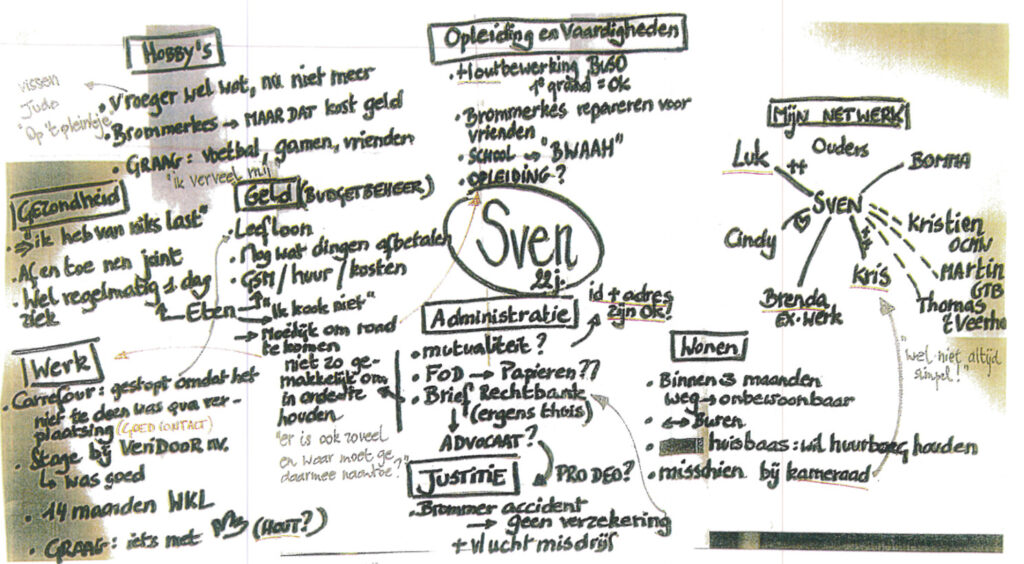 HOBBY'S
vissen
Judo
"Op 't pleintje"
• Vroeger wel wat, nu niet meer
• Brommerkes → MAAR DAT kost geld
• GRAAG: voetbal, gamen, vrienden
"ik verveel mij"
Opleiding en Vaardigheden
• Houtbewerking BUSO
1e graad = OK
• Brommerkes repareren voor
vrienden
• SCHOOL → "BWAAH"
• OPLEIDING?
MIJN NETWERK
Ouders
Luk
++
BOMMA
SVEN
Cindy
Kris
Brenda
EX. WERK
Kristien
OCMW
MARTIN
GTB
Thomas
"wel niet altijd
simpel!"
GEZONDHEID
• → "ik heb van niks last"
• Af en toe nen joint
• Wel regelmatig 1 dag
ziek
Geld (BUDGETBEHEER)
• Leefloon
• Nog wat dingen afbetalen
• GSM/huur/kosten
Eten → "Ik kook niet"
→ Moeilijk om rond
te komen
Sven
22 j.
Administratie
id + adres
zijn OK!
• mutualiteit?
• FOD → Papieren??
• Brief Rechtbank
(ergens thuis)
ADVOCAAT?
PRO DEO?
niet zo ge-
makkelijk om
in orde te
houden
"er is ook zoveel
en waar moet ge
daarmee naartoe?"
JUSTITIE
• Brommer accident
→ geen verzekering
+ vluchtmisdrijf
Werk
• Carrefour: gestopt omdat het
niet te doen was qua ver-
plaatsing (GOED CONTACT)
• Stage bij VENDOOR nv.
↳ was goed
• 14 maanden WKL
• GRAAG: iets met (HOUT?)
Wonen
• Binnen 3 maanden
weg → onbewoonbaar
• ↔ Buren
• huisbaas: wil huurborg houden
• misschien bij kameraad